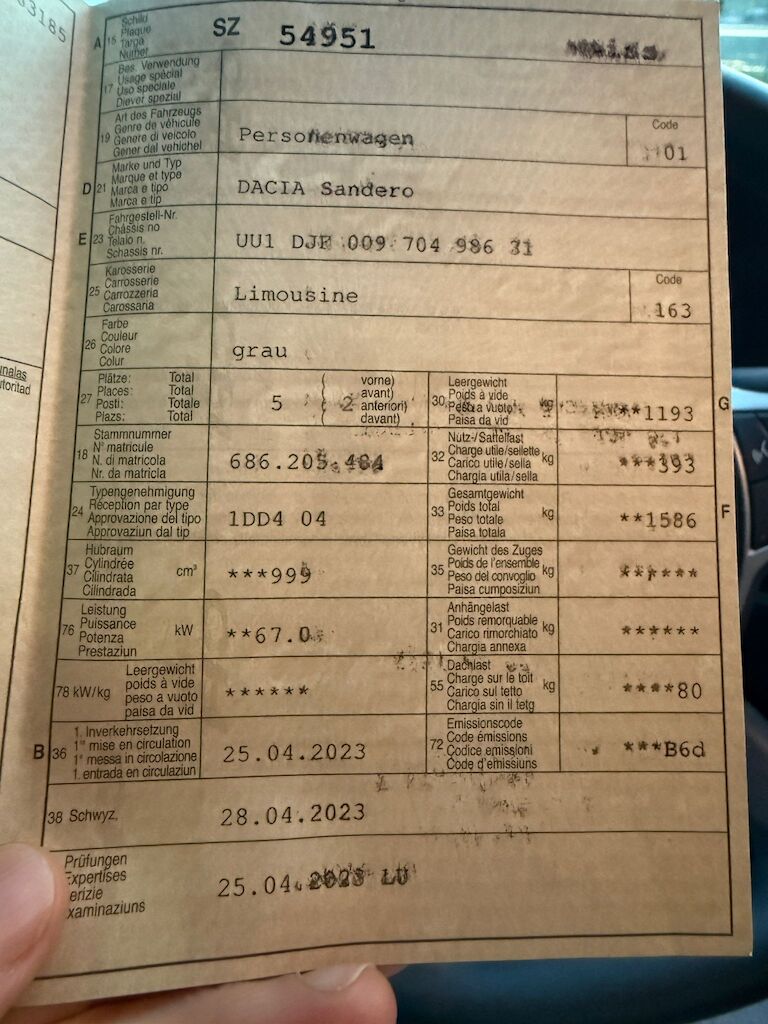 63185
A 15 Schild
Plaque
Targa
Numer
SZ 54951
17 Bes. Verwendung
Usage spécial
Uso speciale
Diever spezial
19 Art des Fahrzeugs
Genre de véhicule
Genere di veicolo
Gener dal vehichel
Personenwagen
Code
01
D 21 Marke und Typ
Marque et type
Marca e tipo
Marca e tip
DACIA Sandero
E 23 Fahrgestell-Nr.
Châssis no
Telaio n.
Schassis nr.
UU1 DJF 009 704 986 31
25 Karosserie
Carrosserie
Carrozzeria
Carossaria
Limousine
Code
163
26 Farbe
Couleur
Colore
Colur
grau
27 Plätze: Total
Places: Total
Posti: Totale
Plazs: Total
5 ( 2 vorne)
avant)
anteriori)
davant)
30 Leergewicht
Poids à vide
Peso a vuoto kg
Paisa da vid
***1193
G
18 Stammnummer
N° matricule
N. di matricola
Nr. da matricla
686.205.484
32 Nutz-/Sattellast
Charge utile/sellette
Carico utile/sella kg
Chargia utila/sella
***393
24 Typengenehmigung
Réception par type
Approvazione del tipo
Approvaziun dal tip
1DD4 04
33 Gesamtgewicht
Poids total
Peso totale kg
Paisa totala
**1586
F
37 Hubraum
Cylindrée
Cilindrata cm³
Cilindrada
***999
35 Gewicht des Zuges
Poids de l'ensemble
Peso del convoglio kg
Paisa cumposiziun
******
76 Leistung
Puissance
Potenza kW
Prestaziun
**67.0
31 Anhängelast
Poids remorquable
Carico rimorchiato kg
Chargia annexa
******
78 kW/kg Leergewicht
poids à vide
peso a vuoto
paisa da vid
******
55 Dachlast
Charge sur le toit
Carico sul tetto kg
Chargia sin il tetg
****80
B 36 1. Inverkehrsetzung
1re mise en circulation
1a messa in circolazione
1. entrada en circulaziun
25.04.2023
72 Emissionscode
Code émissions
Codice emissioni
Code d'emissiuns
***B6d
38 Schwyz,
28.04.2023
Prüfungen
Expertises
erizie
xaminaziuns
25.04.2023 LU
nalas
utoritad